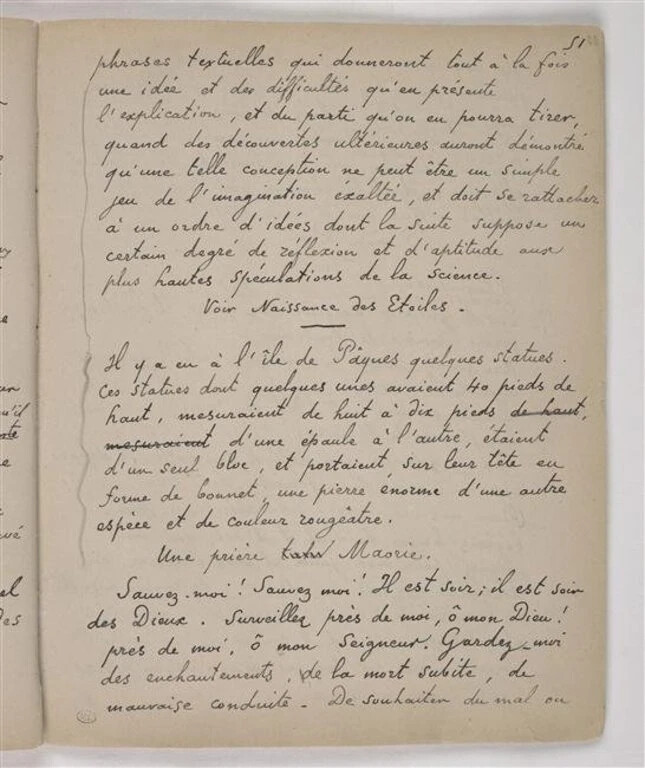 51
phrases textuelles qui donneront tout à la fois
une idée et des difficultés qu'en présente
l'explication, et du parti qu'on en pourra tirer,
quand des découvertes ultérieures auront démontré
qu'une telle conception ne peut être un simple
jeu de l'imagination exaltée, et doit se rattacher
à un ordre d'idées dont la suite suppose un
certain degré de réflexion et d'aptitude aux
plus hautes spéculations de la science.
Voir Naissance des Etoiles.
Il y a eu à l'île de Pâques quelques statues.
Ces statues dont quelques unes avaient 40 pieds de
haut, mesuraient de huit à dix pieds de haut,
mesuraient d'une épaule à l'autre, étaient
d'un seul bloc, et portaient, sur leur tête en
forme de bonnet, une pierre énorme d'une autre
espèce et de couleur rougeâtre.
Une prière Maorie.
Sauvez-moi! Sauvez moi! Il est soir; il est soir
des Dieux. Surveillez près de moi, ô mon Dieu!
près de moi, ô mon Seigneur. Gardez-moi
des enchantements, de la mort subite, de
mauvaise conduite - De souhaiter du mal ou